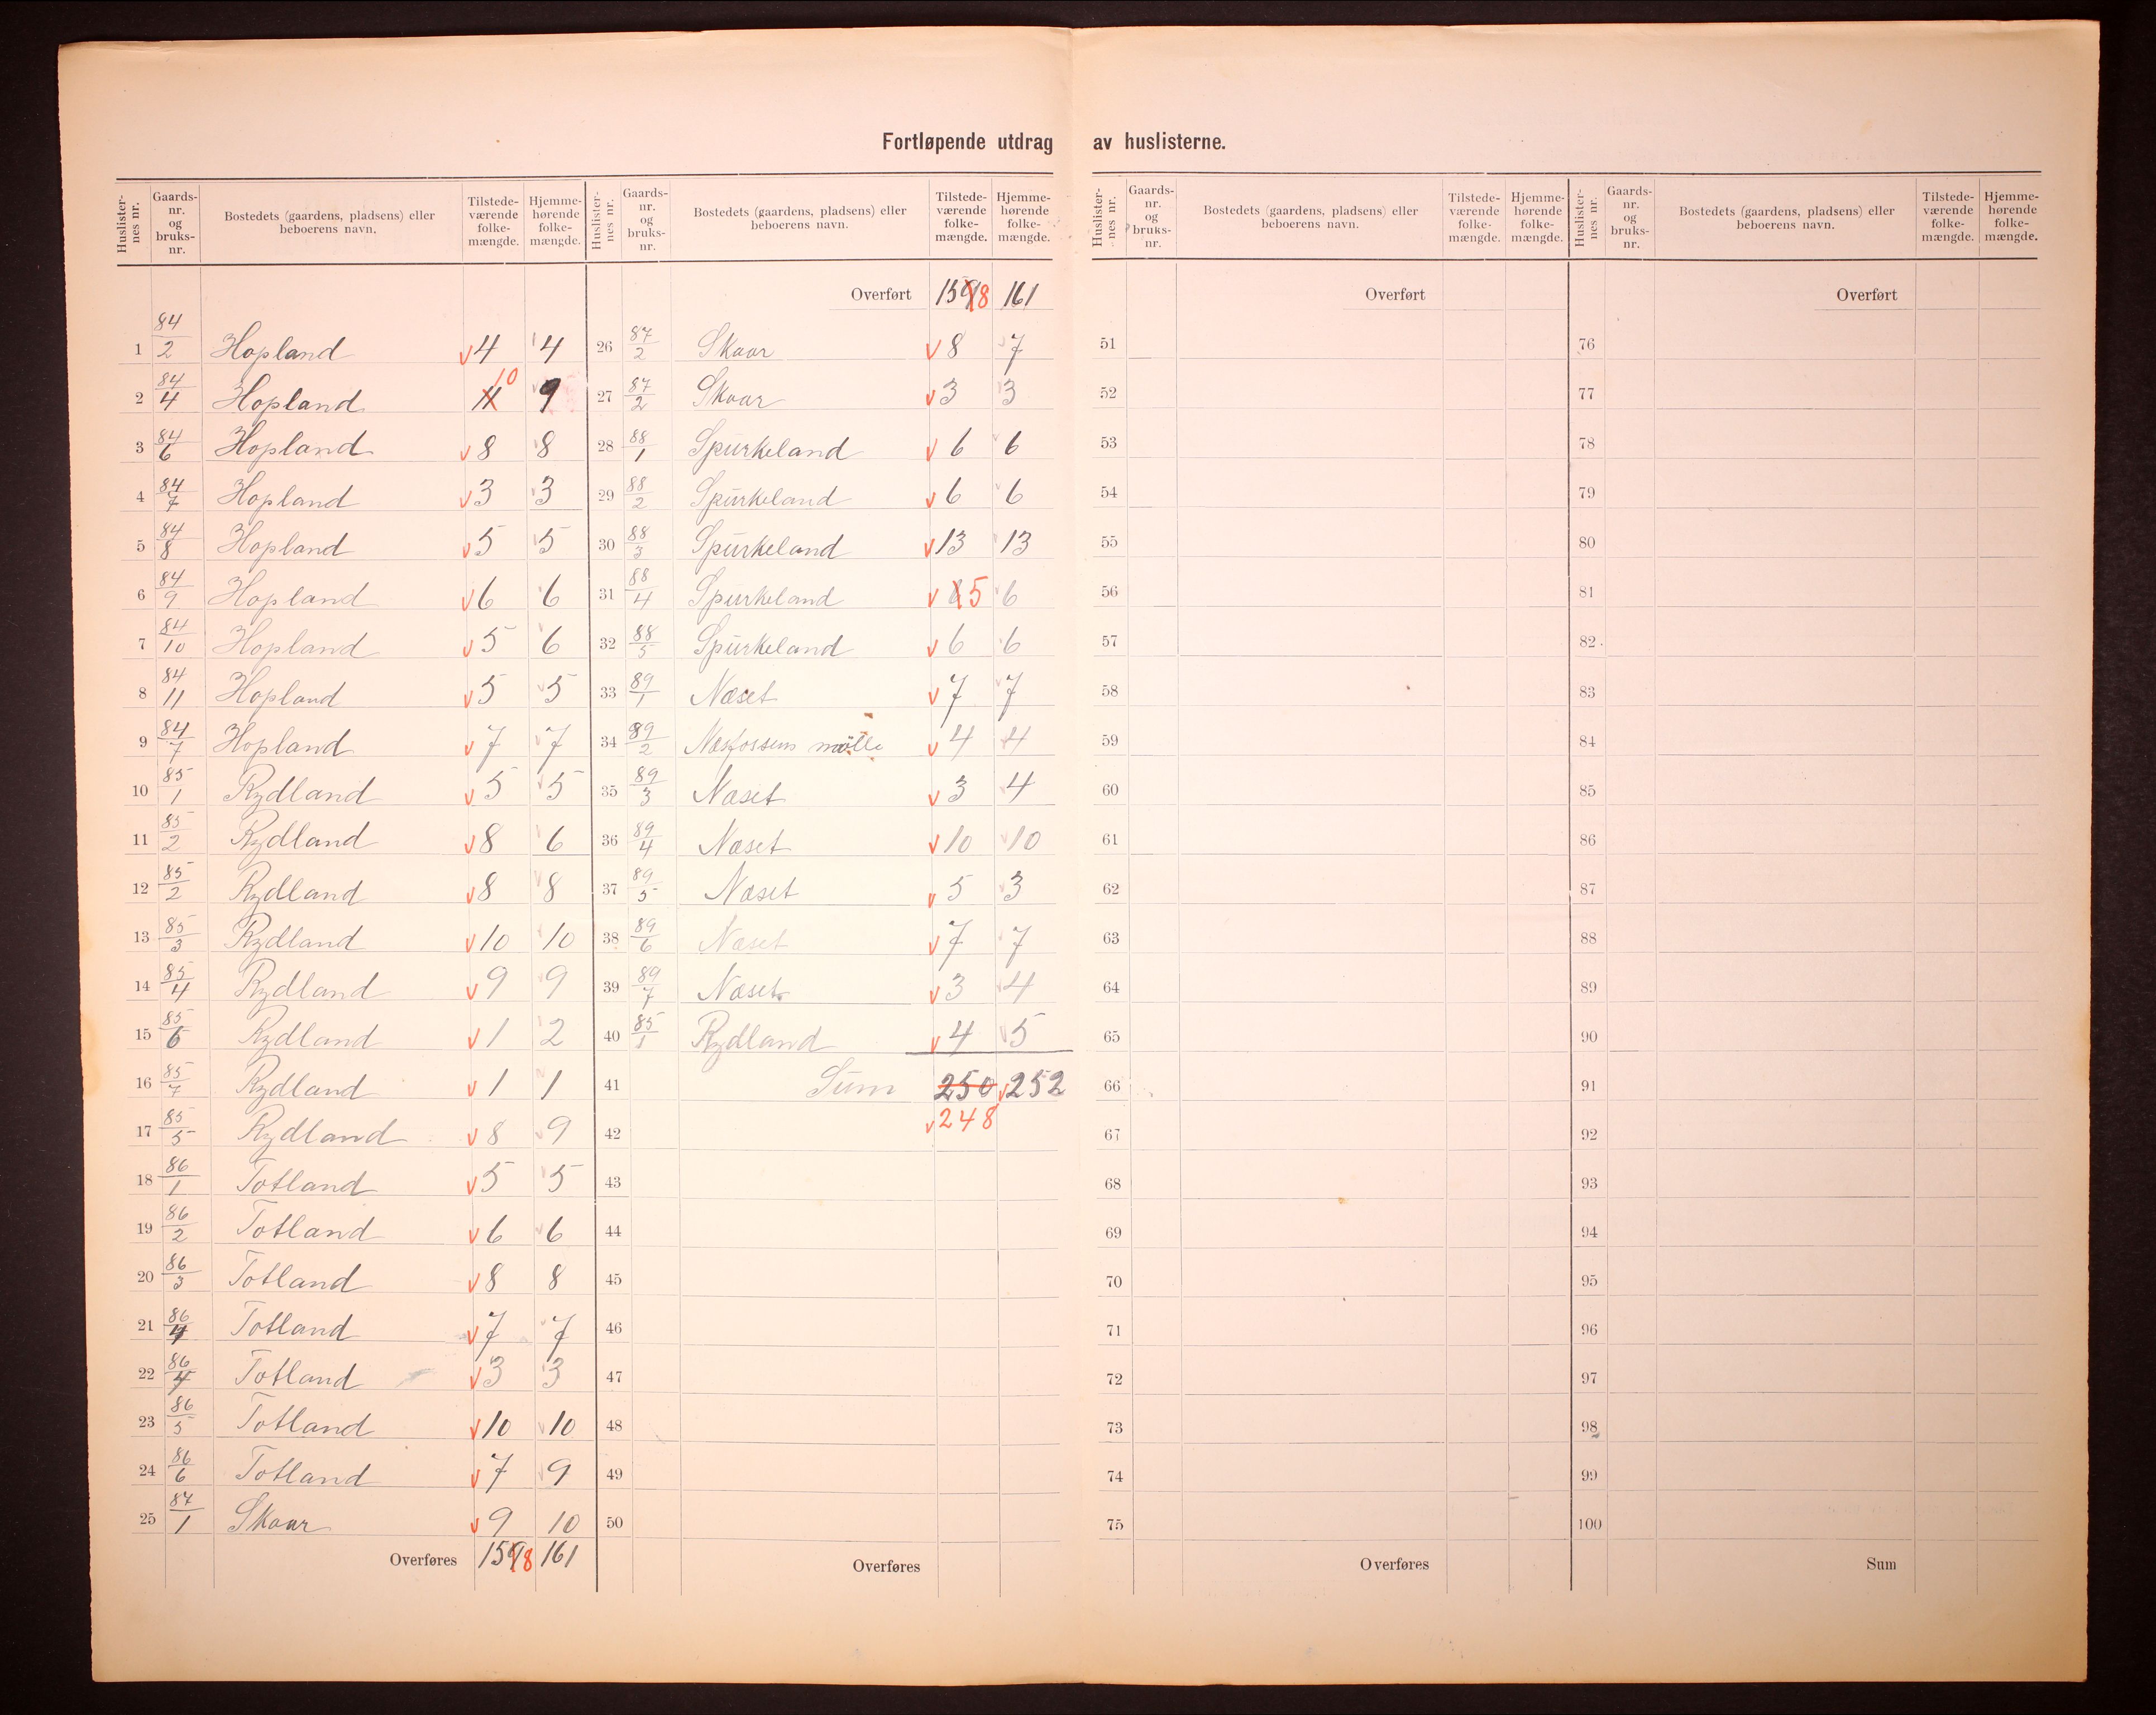 Fortløpende utdrag av huslisterne.
Huslisternes nr. Gaardsnr. og bruksnr. Bostedets (gaardens, pladsens) eller beboerens navn. Tilstedeværende folkemængde. Hjemmehørende folkemængde.
1 84/2 Hopland 4 4
2 84/4 Hopland 11 10 9
3 84/6 Hopland 8 8
4 84/7 Hopland 3 3
5 84/8 Hopland 5 5
6 84/9 Hopland 6 6
7 84/10 Hopland 5 6
8 84/11 Hopland 5 5
9 84/7 Hopland 7 7
10 85/1 Rydland 5 5
11 85/2 Rydland 8 6
12 85/2 Rydland 8 8
13 85/3 Rydland 10 10
14 85/4 Rydland 9 9
15 85/6 Rydland 1 2
16 85/7 Rydland 1 1
17 85/5 Rydland 8 9
18 86/1 Totland 5 5
19 86/2 Totland 6 6
20 86/3 Totland 8 8
21 86/4 Totland 7 7
22 86/4 Totland 3 3
23 86/5 Totland 10 10
24 86/6 Totland 7 9
25 87/1 Skaar 9 10
Overføres 159 8 161
Huslisternes nr. Gaardsnr. og bruksnr. Bostedets (gaardens, pladsens) eller beboerens navn. Tilstedeværende folkemængde. Hjemmehørende folkemængde.
Overført 159 8 161
26 87/2 Skaar 8 7
27 87/2 Skaar 3 3
28 88/1 Spurkeland 6 6
29 88/2 Spurkeland 6 6
30 88/3 Spurkeland 13 13
31 88/4 Spurkeland 6 5 6
32 88/5 Spurkeland 6 6
33 89/1 Næset 7 7
34 89/2 Næsfossens mølle 4 4
35 89/3 Næset 3 4
36 89/4 Næset 10 10
37 89/5 Næset 5 3
38 89/6 Næset 7 7
39 89/7 Næset 3 4
40 85/1 Rydland 4 5
41 Sum 250 252
42 248
43
44
45
46
47
48
49
50
Overføres
Huslisternes nr. Gaardsnr. og bruksnr. Bostedets (gaardens, pladsens) eller beboerens navn. Tilstedeværende folkemængde. Hjemmehørende folkemængde.
Overført
51
52
53
54
55
56
57
58
59
60
61
62
63
64
65
66
67
68
69
70
71
72
73
74
75
Overføres
Huslisternes nr. Gaardsnr. og bruksnr. Bostedets (gaardens, pladsens) eller beboerens navn. Tilstedeværende folkemængde. Hjemmehørende folkemængde.
Overført
76
77
78
79
80
81
82
83
84
85
86
87
88
89
90
91
92
93
94
95
96
97
98
99
100
Sum